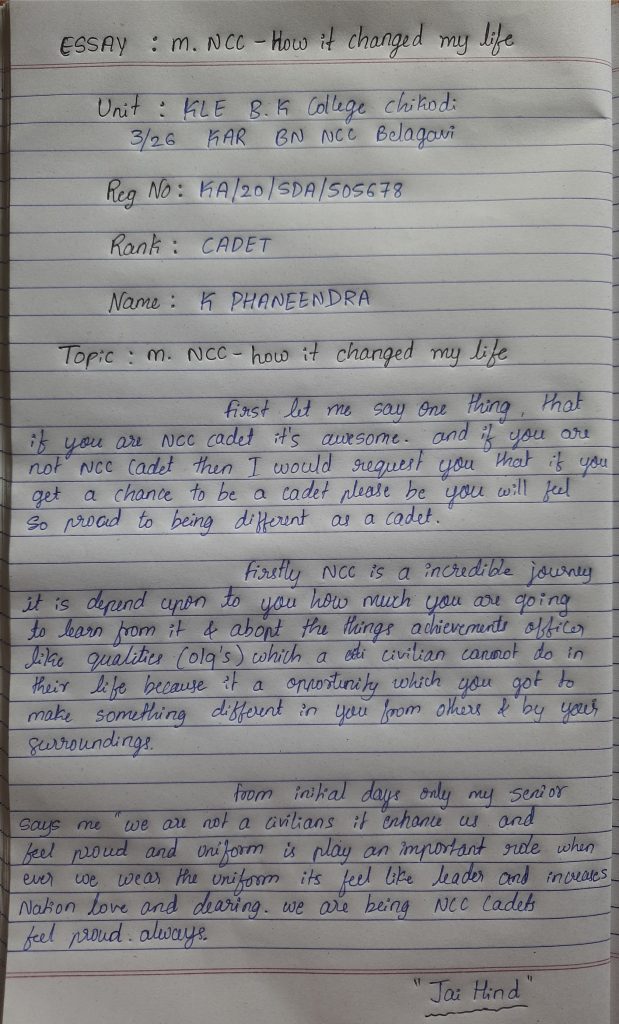 ESSAY : m. NCC - How it changed my life
Unit : KLE B.K College chikodi
3/26 KAR BN NCC Belagavi
Reg No : KA/20/SDA/505678
Rank : CADET
Name : K PHANEENDRA
Topic : m. NCC - how it changed my life
first let me say one thing, that
if you are NCC cadet it's awesome. and if you are
not NCC Cadet then I would request you that if you
get a chance to be a cadet please be you will feel
so proud to being different as a cadet.
firstly NCC is a incredible journey
it is depend upon to you how much you are going
to learn from it & abopt the things achievements officer
like qualities (olq's) which a civilian cannot do in
their life because it a opportunity which you got to
make something different in you from others & by your
surroundings.
from initial days only my senior
says me "we are not a civilians it enhance us and
feel proud and uniform is play an important role when
ever we wear the uniform its feel like leader and increases
Nation love and dearing. we are being NCC Cadets
feel proud. always.
"Jai Hind"